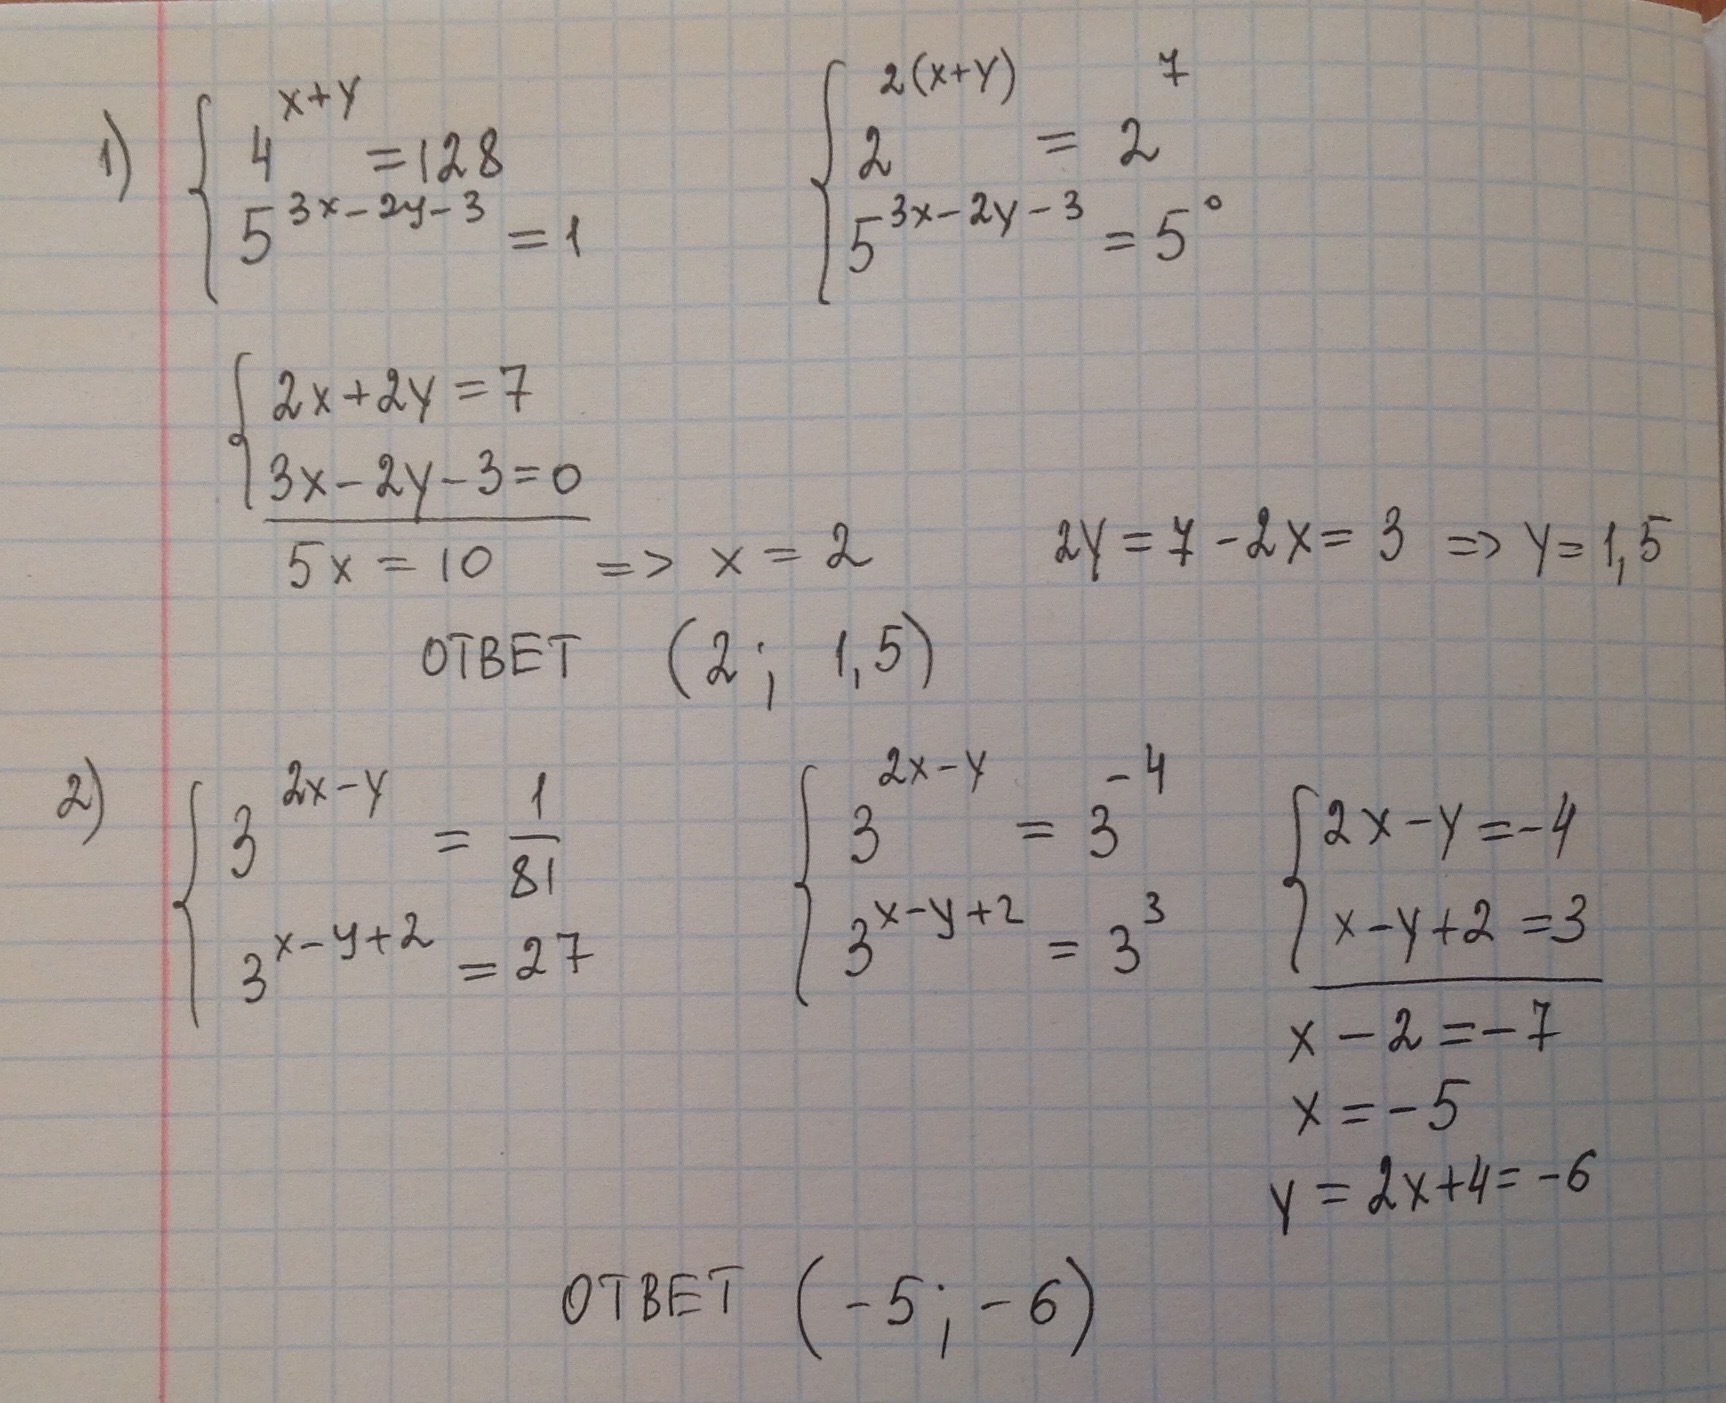 1) { 4^(x+y) = 128    { 2^(2(x+y)) = 2^7
5^(3x-2y-3) = 1    5^(3x-2y-3) = 5^0
{ 2x+2y = 7
3x-2y-3=0
5x = 10 => x = 2    2y = 7-2x = 3 => y = 1,5
ОТВЕТ (2; 1,5)
2) { 3^(2x-y) = 1/81    { 3^(2x-y) = 3^(-4)    { 2x-y = -4
3^(x-y+2) = 27    3^(x-y+2) = 3^3    x-y+2 = 3
x-2 = -7
x = -5
y = 2x+4 = -6
ОТВЕТ (-5; -6)